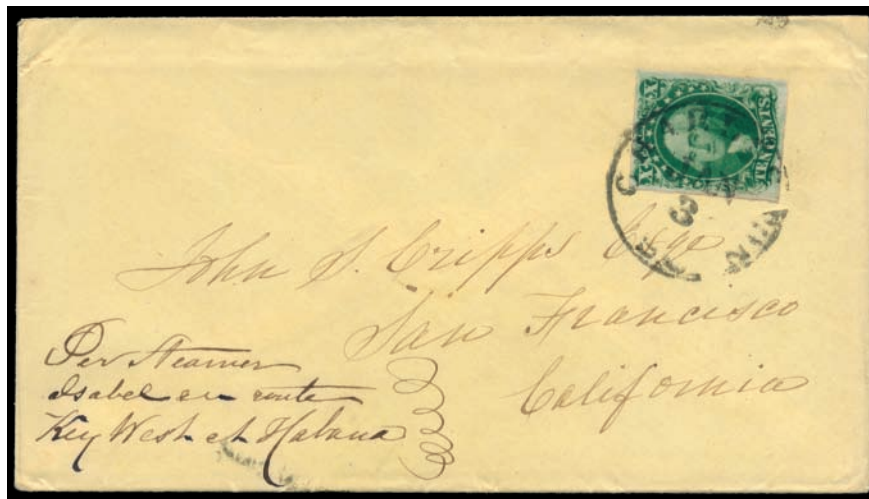 X X
TEN CENTS
John S. Cripps Esqr
San Francisco
California
Per Steamer
Isabel en route
Key West et Habana